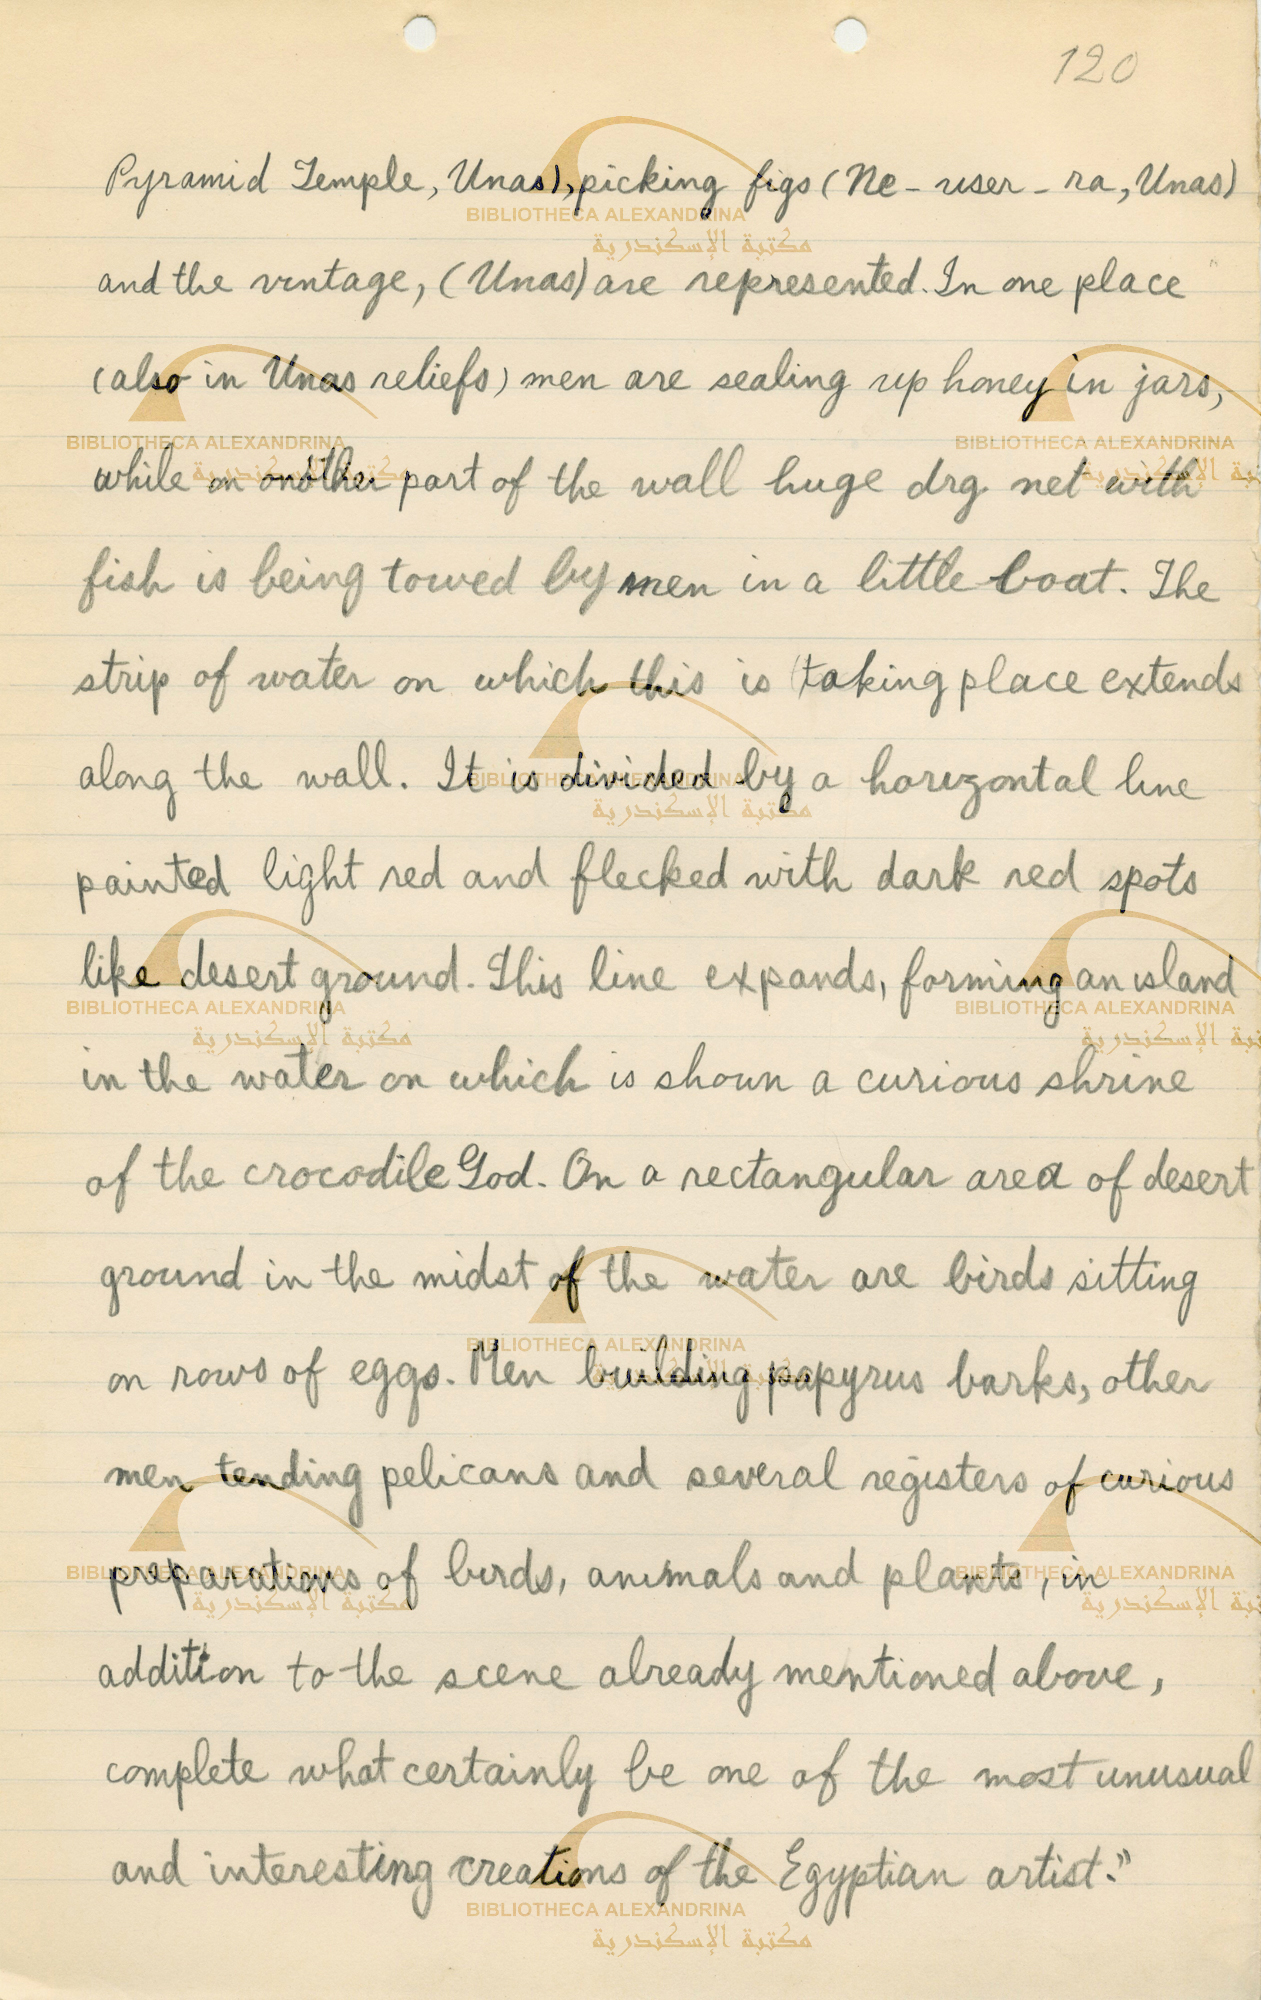 120
Pyramid Temple, Unas), picking figs (Ne-user-ra, Unas)
and the vintage, (Unas) are represented. In one place
(also in Unas reliefs) men are sealing up honey in jars,
while on another part of the wall huge drg net with
fish is being towed by men in a little boat. The
strip of water on which this is taking place extends
along the wall. It is divided by a horizontal line
painted light red and flecked with dark red spots
like desert ground. This line expands, forming an island
in the water on which is shown a curious shrine
of the crocodile God. On a rectangular area of desert
ground in the midst of the water are birds sitting
on rows of eggs. Men building papyrus barks, other
men tending pelicans and several registers of curious
preparations of birds, animals and plants, in
addition to the scene already mentioned above,
complete what certainly be one of the most unusual
and interesting creations of the Egyptian artist."
BIBLIOTHECA ALEXANDRINA
مكتبة الإسكندرية